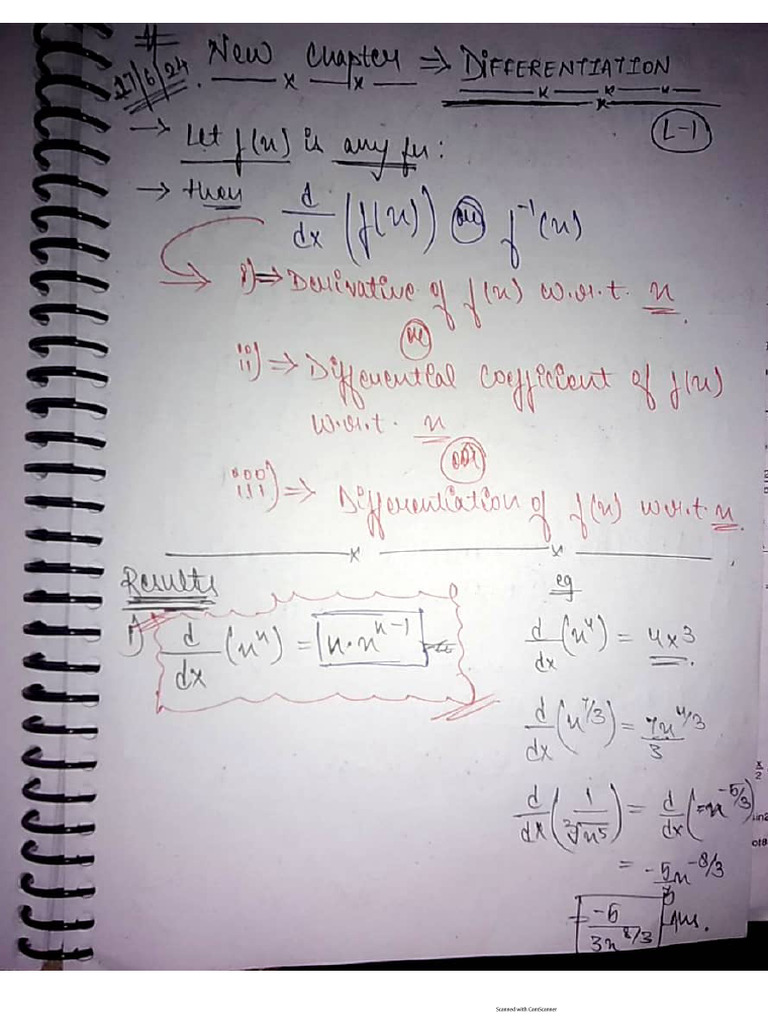 #
17/6/24. New Chapter ⇒ DIFFERENTIATION
L-1
→ Let f(x) is any fn:
→ then d/dx (f(x)) or f⁻¹(x)
i) ⇒ Derivative of f(x) w.r.t. x.
or
ii) ⇒ Differential coefficient of f(x)
w.r.t. x
or
iii) ⇒ Differentiation of f(x) w.r.t. x.
Results
1) d/dx (xⁿ) = n·xⁿ⁻¹
eg
d/dx (x⁴) = 4x3.
d/dx (x^7/3) = 7x^4/3 / 3
d/dx (1/∛x⁵) = d/dx (x^-5/3)
= -5x^-8/3 / 3
= -5 / 3x^8/3 Ans.
Scanned with CamScanner